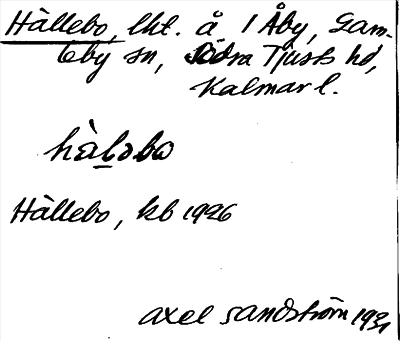 Hällebo, lht. å 1 Åby, Gam-
leby sn, Södra Tjusts hd,
Kalmar l.
hàl̠əbω
Hällebo, kb 1926
Axel Sandström 1931